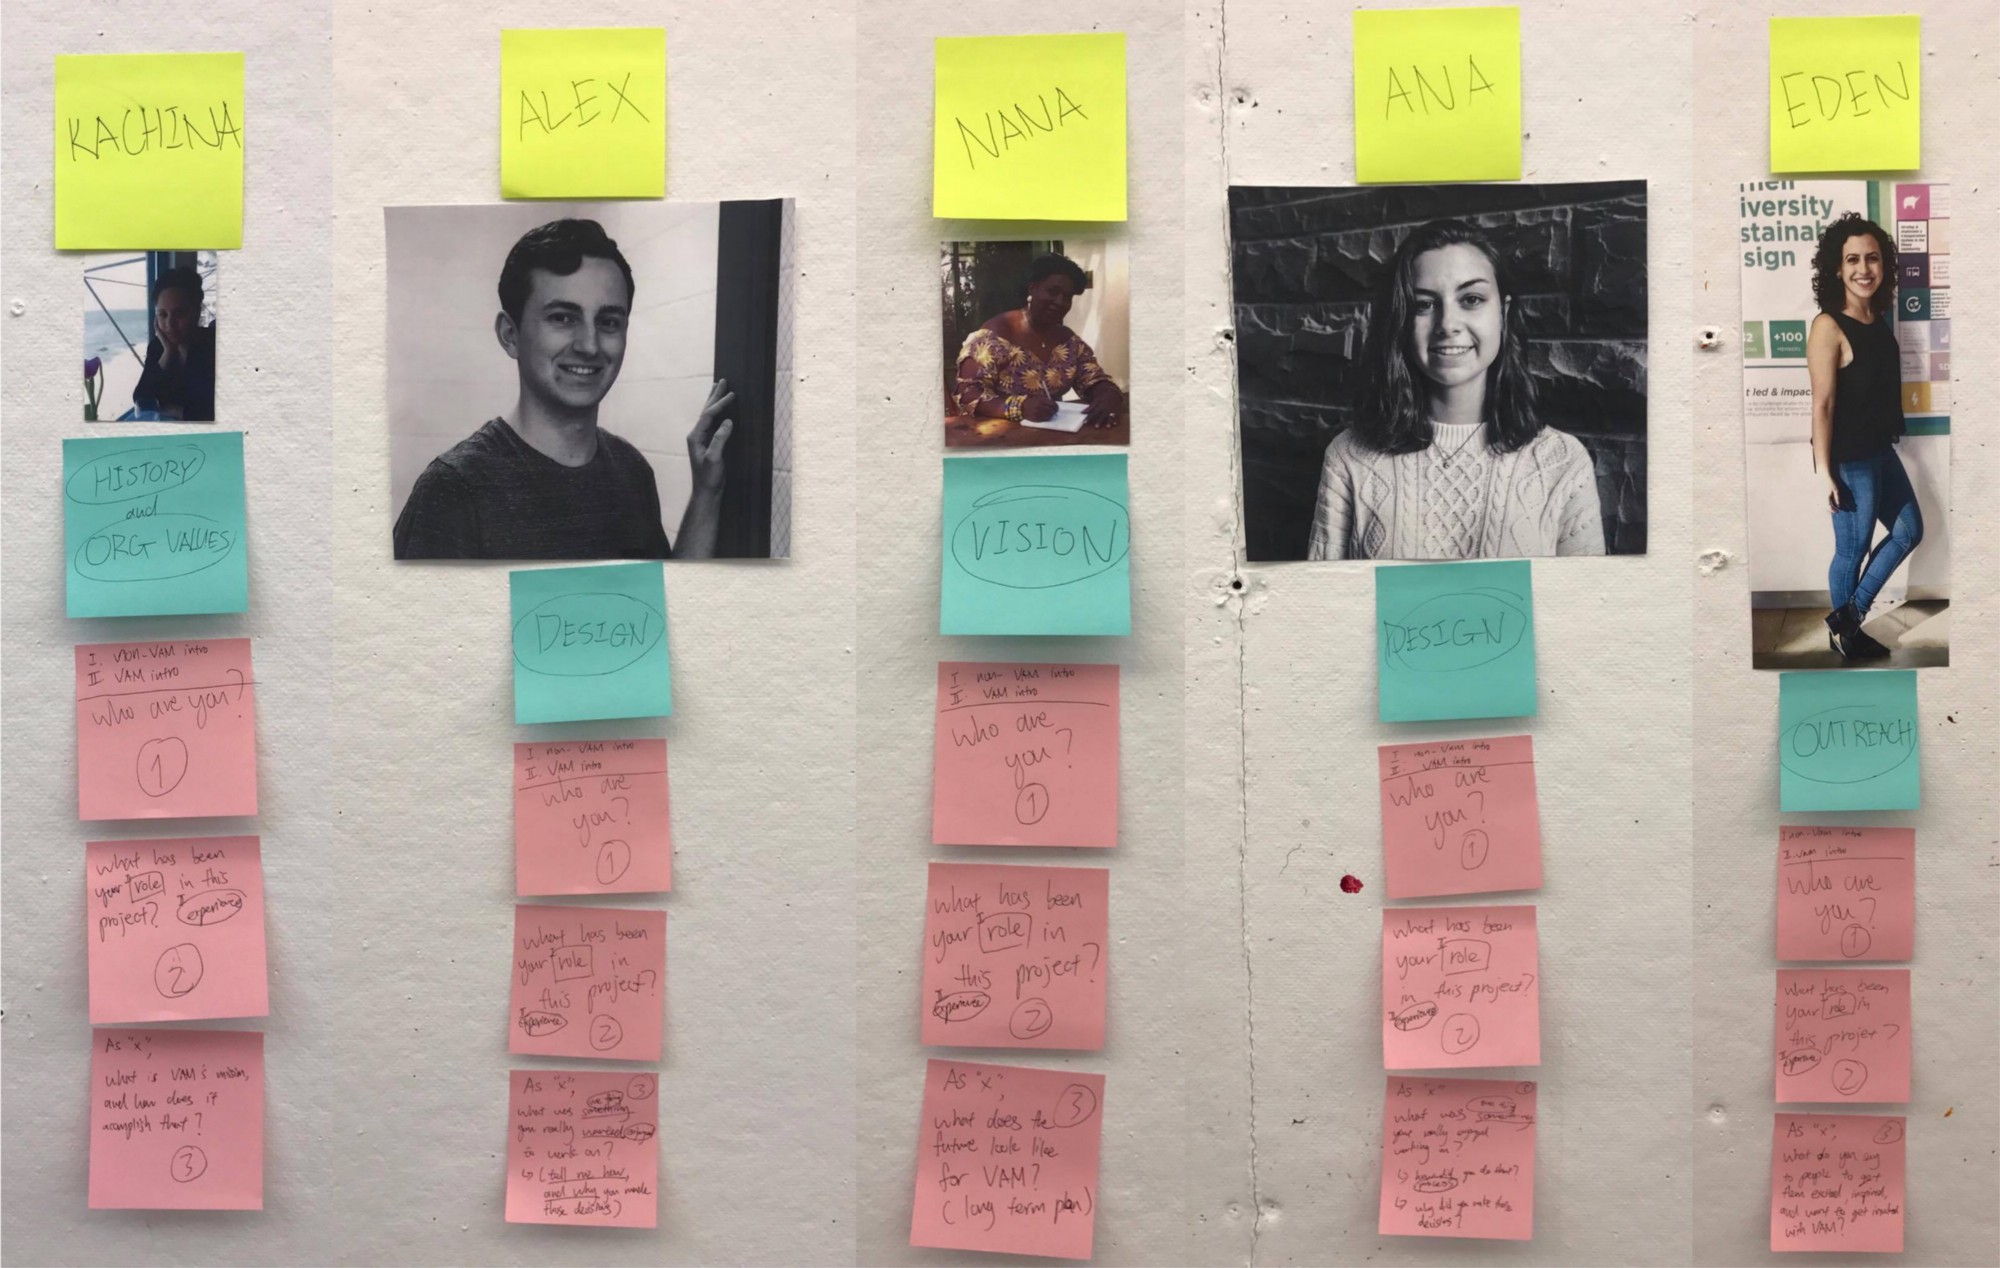 KACHINA
HISTORY
and
ORG VALUES
I. non-VAM intro
II. VAM intro
who are you?
1
what has been
your role in this
project? experience
2
As "x",
what is VAM's mission,
and how does it
accomplish that?
3
ALEX
DESIGN
I. non-VAM intro
II. VAM intro
who are
you?
1
what has been
your role in
this project?
experience
2
As "x", 3
what was something
you really wanted
to work on?
↳ (tell me how,
and why you made
those decisions)
NANA
VISION
I. non-VAM intro
II. VAM intro
Who are
you?
1
what has been
your role in
this project?
experience
2
As "x", 3
what does the
future look like
for VAM?
(long term plan)
ANA
DESIGN
I. non-VAM intro
VAM intro
who are
you?
1
what has been
your role
in this project?
experience
2
As "x", 3
what was something
you really enjoyed
working on?
↳ you do that?
process
↳ why did you make those
decisions?
EDEN
men
iversity
stainab
sign
+100
t led & impac
OUTREACH
I non-VAM intro
II. VAM intro
Who are
you?
1
what has been
your role in
this project?
experience
2
As "x", 3
what do you say
to people to get
them excited, inspired,
and want to get involved
with VAM?